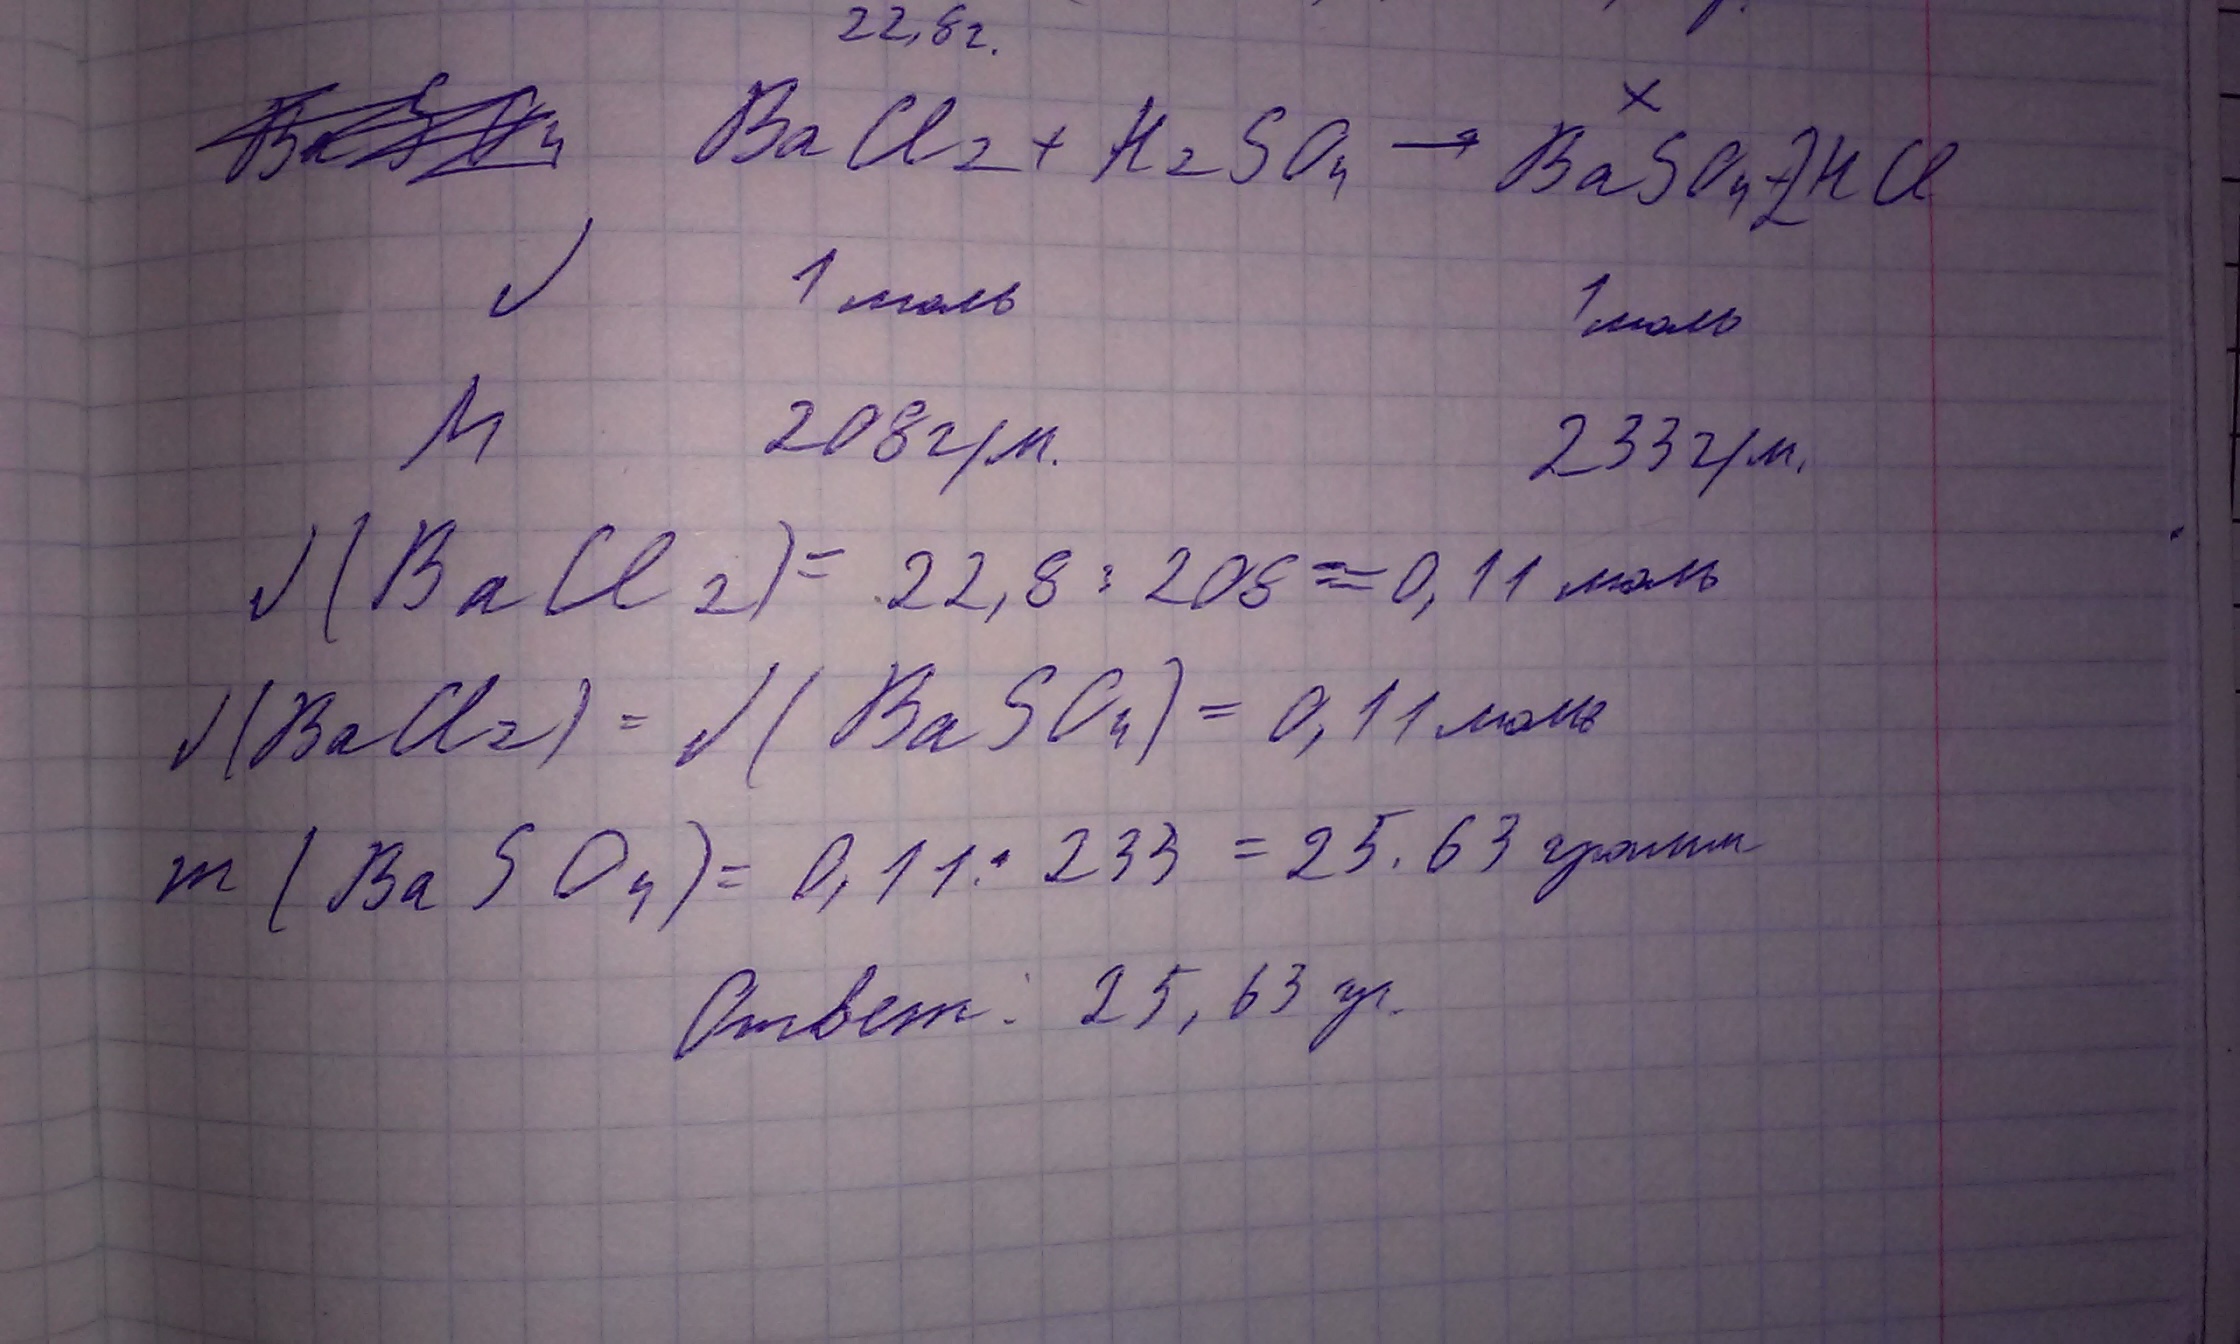 22,8г.
x
BaSO4 BaCl2 + H2SO4 → BaSO4 + 2HCl
√ 1 моль 1 моль
M 208г/м. 233г/м.
√(BaCl2) = 22,8 : 208 ≈ 0,11 моль
√(BaCl2) = √(BaSO4) = 0,11 моль
m(BaSO4) = 0,11 · 233 = 25.63 грамм
Ответ: 25,63 гр.